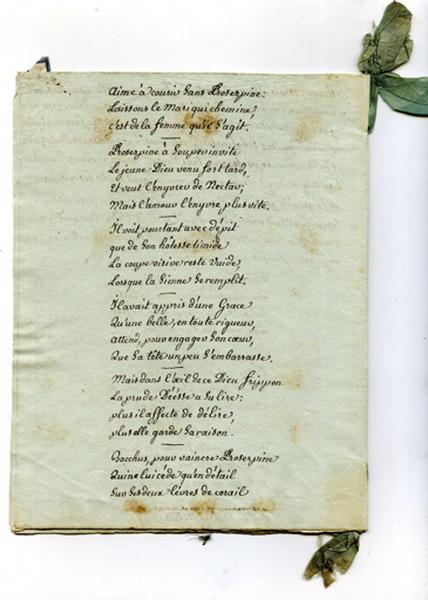 Aime à courir sans Proserpine:
Laissons le Mari qui chemine,
C'est de la femme qu'il s'agit.
Proserpine à Souper invite
Le jeune Dieu venu fort tard,
Et veut l'enyvrer de Nectar;
Mais l'amour l'enyvre plus vite.
Il voit pourtant avec dépit
que de son hôtesse timide
La coupe visive reste Vuide,
Lorsque la Sienne Se remplit.
Il avait appris d'une Grace
Qu'une belle, en toute rigueur,
Attend, pour engager Son cœur,
Que Sa tête un peu S'embarrasse.
Mais dans l'œil de ce Dieu frippon
La prude Déésse a Su lire:
plus il affecte de délire,
plus elle garde Sa raison.
Bacchus, pour vaincre Proserpine
Qui ne lui cède qu'en détail
Sur Ses deux lèvres de corail